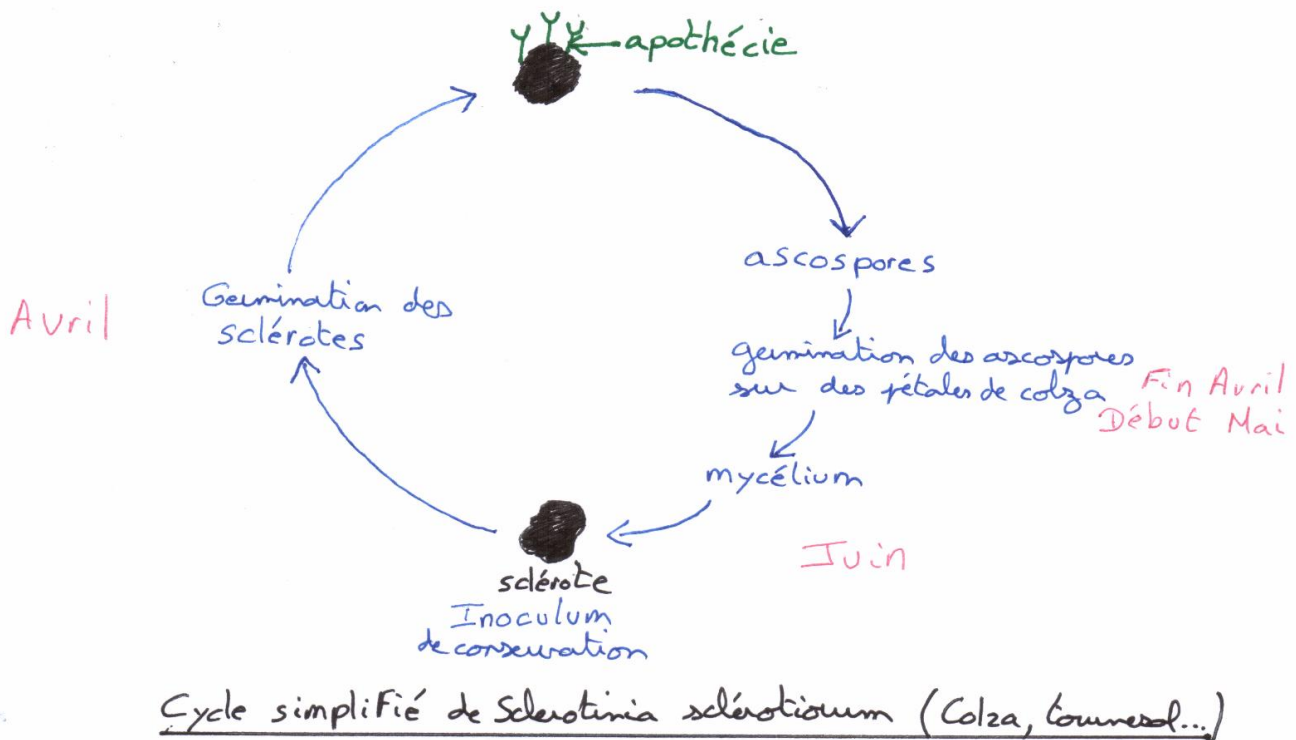 apothécie
ascospores
germination des ascospores
sur des pétales de colza
Fin Avril
Début Mai
mycélium
Juin
sclérote
Inoculum
de conservation
Germination des
sclérotes
Avril
Cycle simplifié de Sclerotinia sclérotiorum (Colza, tournesol...)